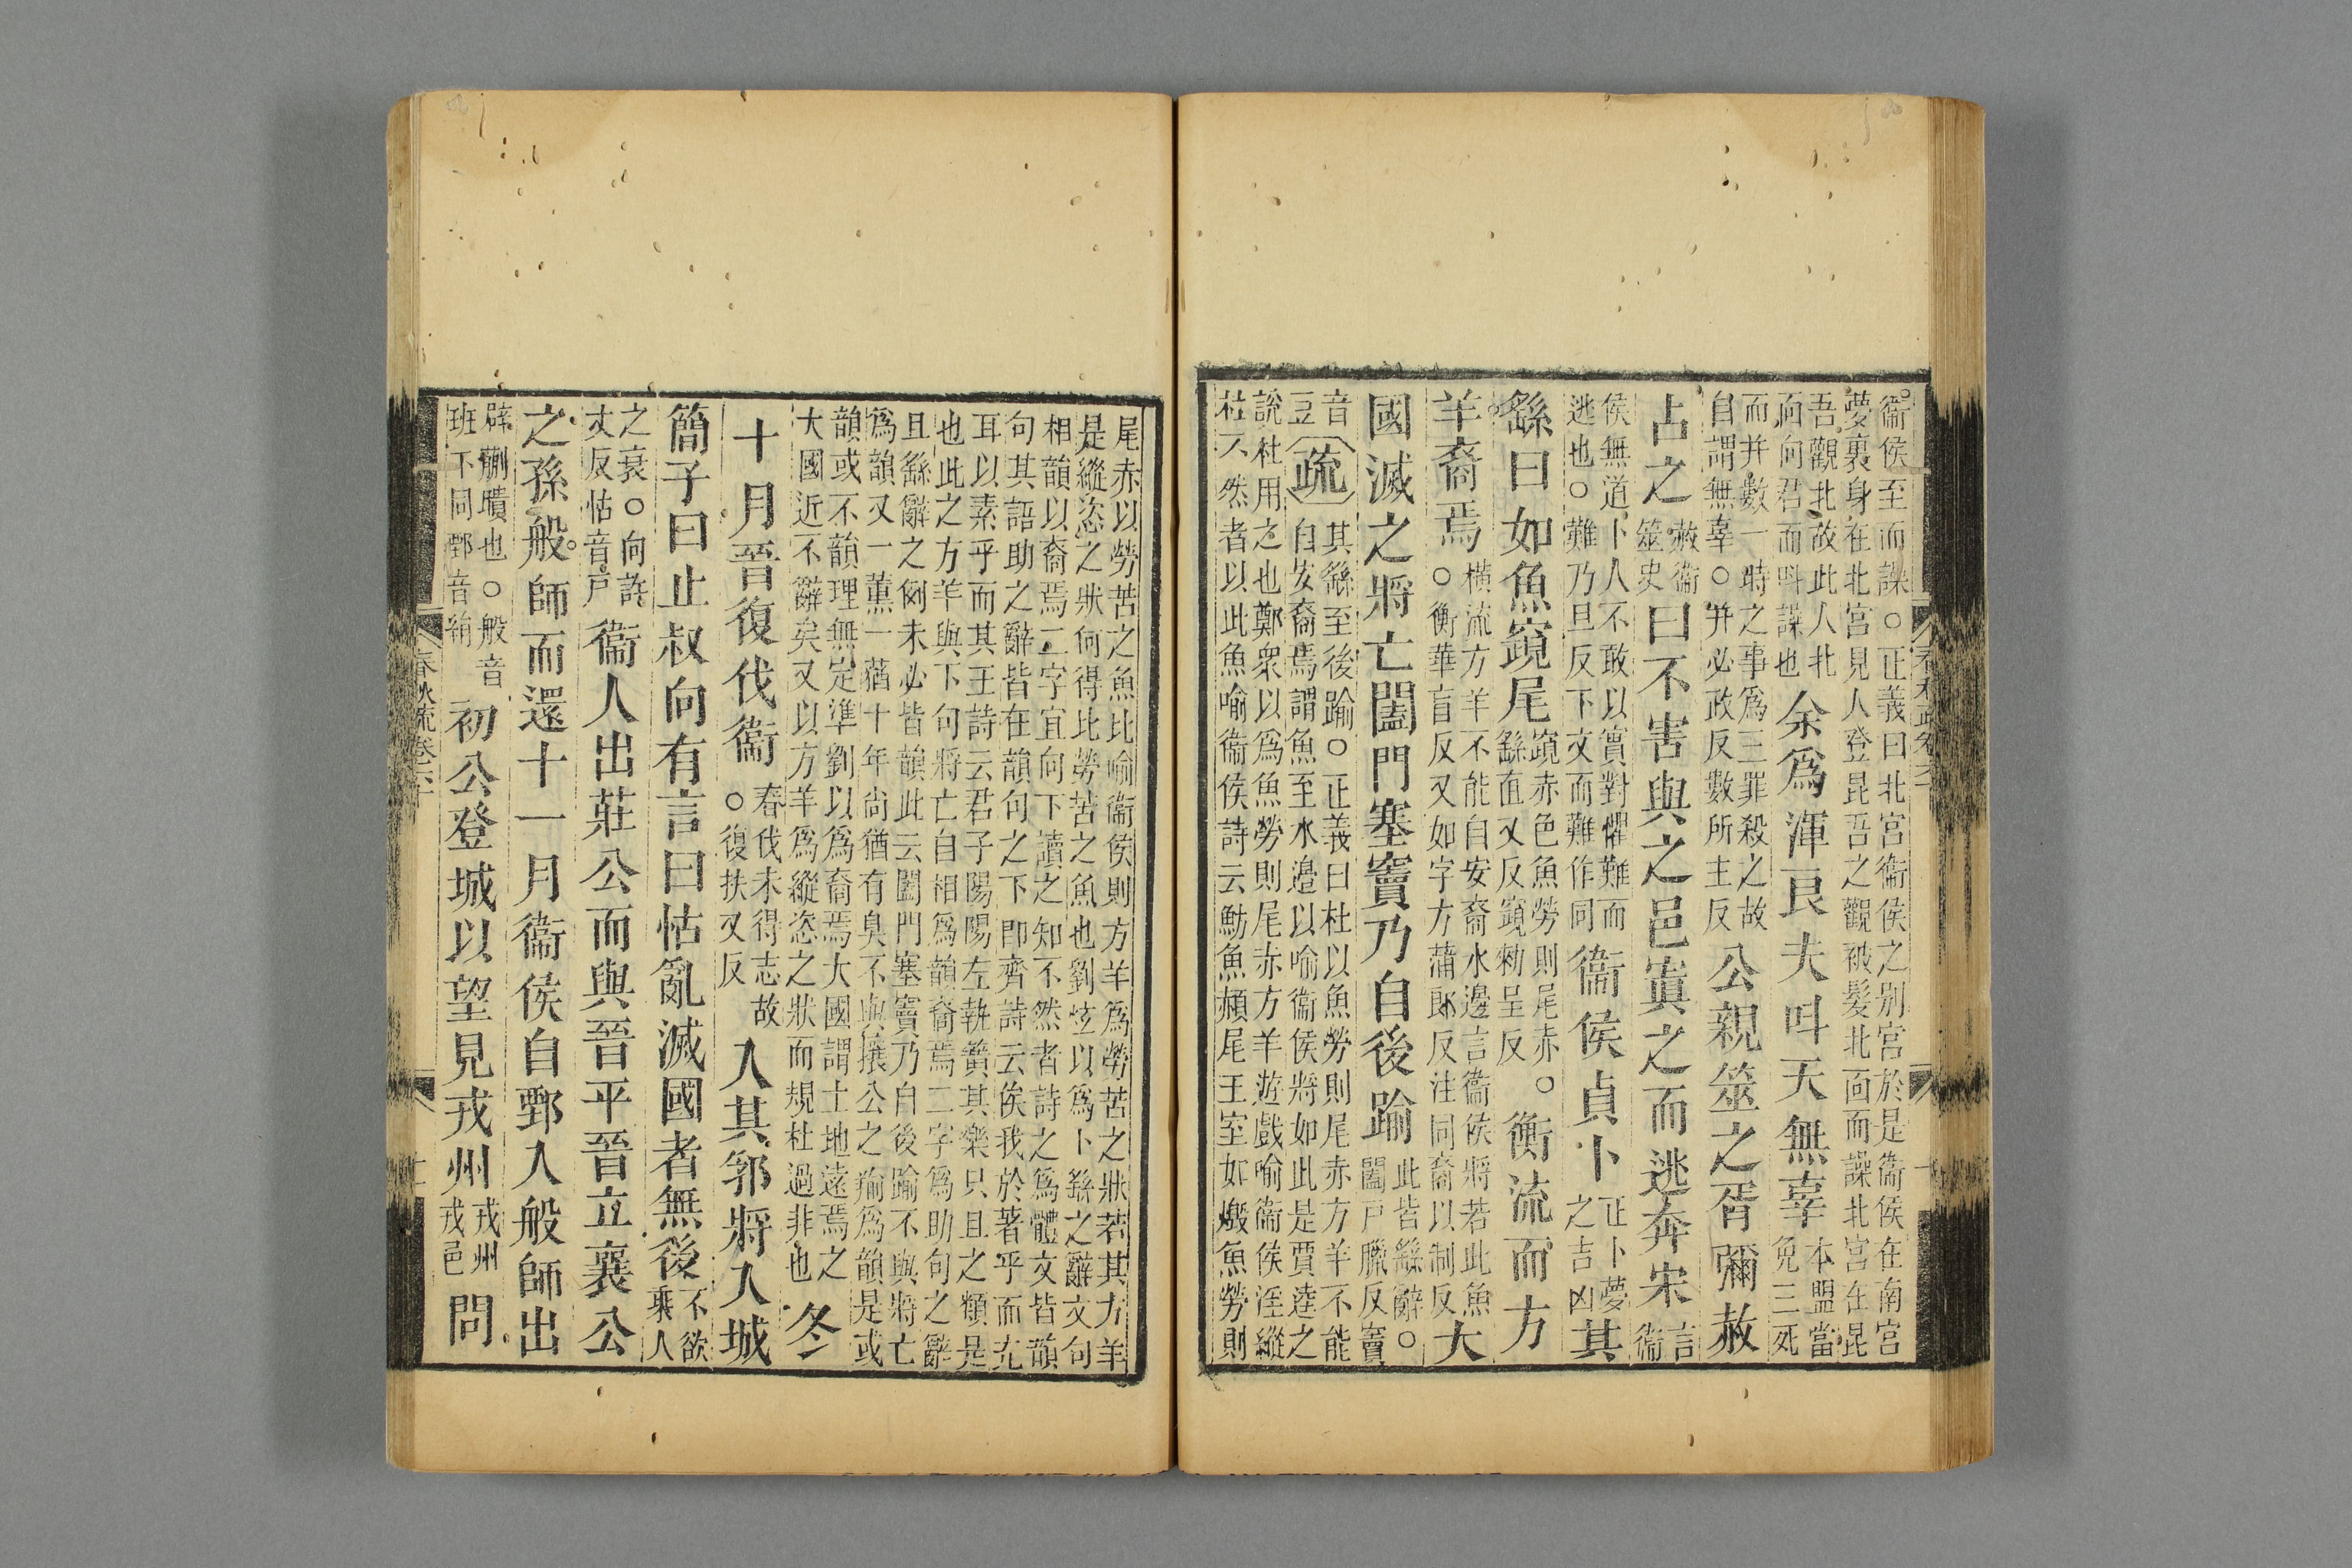 衞侯至而譟○正義曰北宮衞侯之别宮於是衞侯在南宮
夢裏身在北宮見人登昆吾之觀被髮北面而譟北宮在昆
吾觀北故此人北
向向君而呌譟也
余爲渾良夫呌天無辜
本盟當
免三死
而并數一時之事爲三罪殺之故
自謂無辜○并必政反數所主反
公親筮之胥彌赦
占之
赦衞
筮史
曰不害與之邑寘之而逃奔宋
言
衞
侯無道卜人不敢以實對懼難而
逃也○難乃旦反下文而難作同
衞侯貞卜
正卜夢
之吉凶
其
繇曰如魚竀尾
竀赤色魚勞則尾赤○
繇直又反竀勑呈反
衡流而方
羊裔焉
橫流方羊不能自安裔水邊言衞侯將若此魚
○衡華盲反又如字方蒲郎反注同裔以制反
大
國滅之將亡闔門塞竇乃自後踰
此皆繇辭○
闔戶臘反竇
音
豆
疏
其繇至後踰○正義曰杜以魚勞則尾赤方羊不能
自安裔焉謂魚至水邊以喻衞侯將如此是賈逵之
說杜用之也鄭衆以爲魚勞則尾赤方羊遊戲喻衞侯淫縱
杜不然者以此魚喻衞侯詩云魴魚赬尾王室如燬魚勞則
尾赤以勞苦之魚比喻衞侯則方羊爲勞苦之狀若其方羊
是縱恣之狀何得比勞苦之魚也劉炫以爲卜繇之辭文句
相韻以裔焉二字宜向下讀之知不然者詩之爲體文皆韻
句其語助之辭皆在韻句之下即齊詩云俟我於著乎而充
耳以素乎而其王詩云君子陽陽左執簧其樂只且之類是
也此之方羊與下句將亡自相爲韻裔焉二字爲助句之辭
且繇辭之例未必皆韻此云闔門塞竇乃自後踰不與將亡
爲韻又一薫一蕕十年尚猶有臭不與攘公之羭爲韻是或
韻或不韻理無定準劉以爲裔焉大國謂土地遠焉之
大國近不辭矣又以方羊爲縱恣之狀而規杜過非也
冬
十月晉復伐衞
春伐未得志故
○復扶又反
入其郛將入城
簡子曰止叔向有言曰怙亂滅國者無後
不欲
乘人
之衰○向許
丈反怙音戶
衞人出莊公而與晉平晉立襄公
之孫般師而還十一月衞侯自鄄入般師出
辟蒯聵也○般音
班下同鄄音絹
初公登城以望見戎州
戎州
戎邑
問
春秋疏卷六十